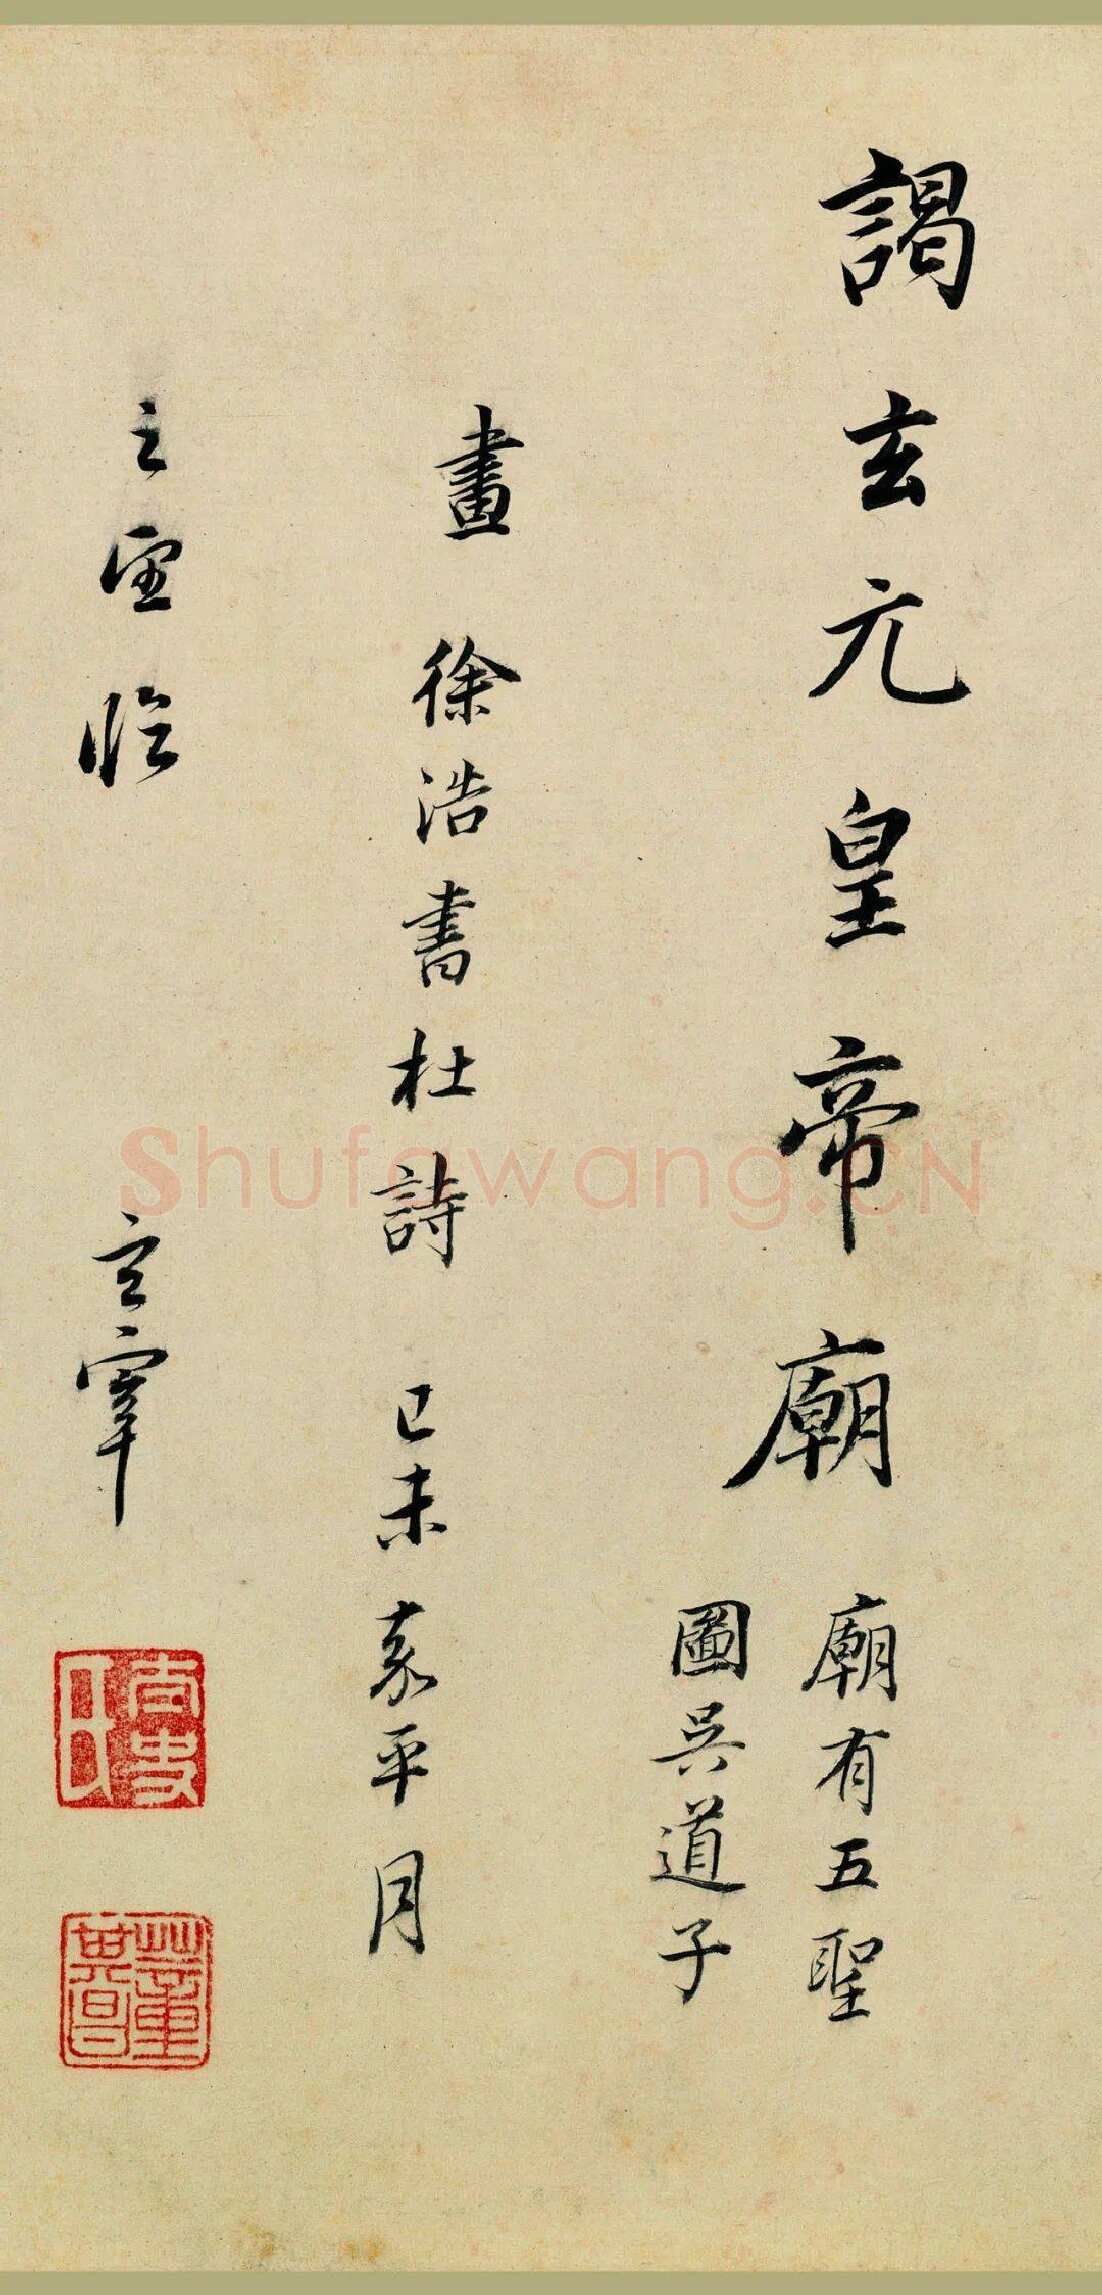 謁玄元皇帝廟
廟有五聖
圖吳道子
畫 徐浩書杜詩 己未嘉平月
之望臨 玄宰
太史氏
董其昌
Shufawang.CN